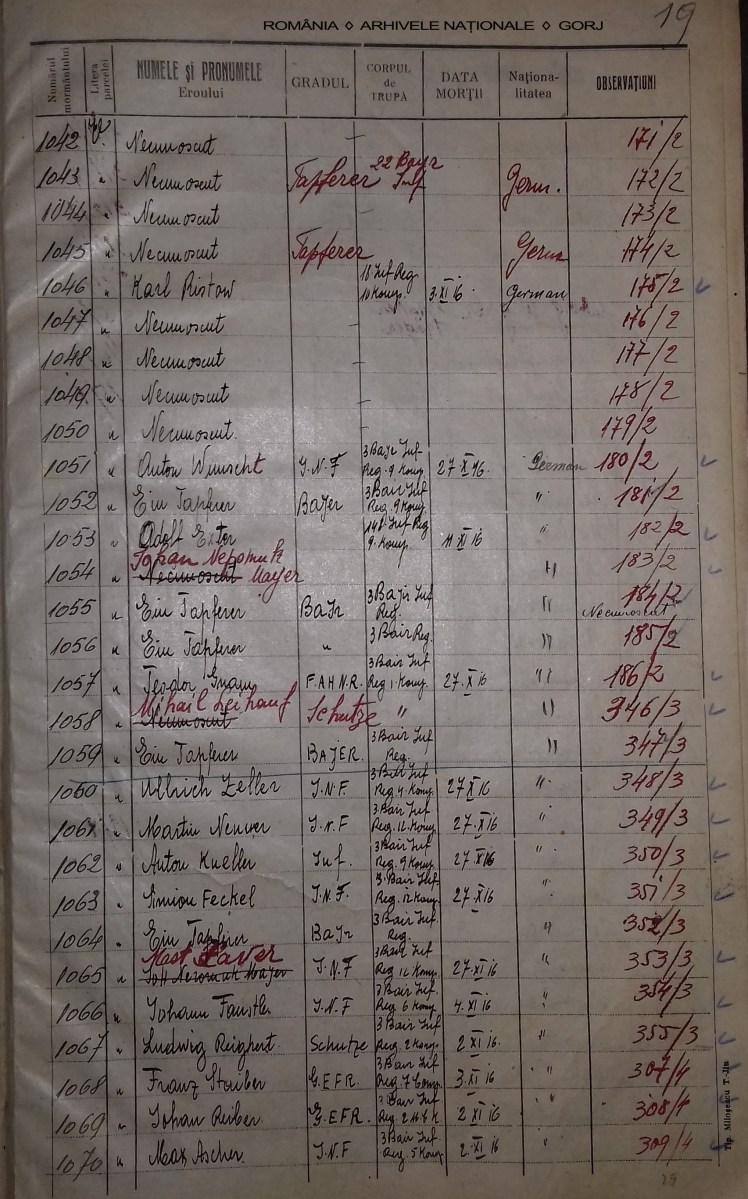 19
ROMÂNIA ◊ ARHIVELE NAȚIONALE ◊ GORJ
Numărul mormântului Litera parcelei NUMELE și PRONUMELE Eroului GRADUL CORPUL de TRUPĂ DATA MORȚII Naționalitatea OBSERVAȚIUNI
1042 Necunoscut — 171/2
1043 " Necunoscut Tapferer 22 Bayr Inf Germ. 172/2
1044 " Necunoscut — 173/2
1045 " Necunoscut Tapferer Germ 174/2
1046 " Karl Ristow 18 Inf Reg 10 Komp. 3.XI 16 German 175/2
1047 " Necunoscut — 176/2
1048 " Necunoscut — 177/2
1049 " Necunoscut — 178/2
1050 " Necunoscut. — 179/2
1051 " Anton Wunscht I.N.F 3 Bajr Inf Reg. 9 Komp 27.X 16. German 180/2
1052 " Ein Tapferer Bajer 3 Bair Inf Reg 9 Komp " 181/2
1053 " Adolf 148 Inf Reg 9. Komp 11 XI 16 " 182/2
1054 " Johan Nepomuk Necunoscut Mayer " 183/2
1055 " Ein Tapferer Bajr 3 Bajr Inf Reg. " 184/2 Necunoscut
1056 " Ein Tapferer " 3 Bair Reg. " 185/2
1057 " Teodor F.A.H.N.R. 3 Bair Inf Reg 1 Komp. 27.X 16 " 186/2
1058 " Mihail Necunoscut Schutze " " 346/3
1059 " Ein Tapferer BAJER. 3 Bair Inf Reg. " 347/3
1060 " Ullrich Zeller I.N.F. 3 Bair Inf Reg. 4 Komp. 27 X 16 " 348/3
1061 " Martin I.N.F 3 Bair Inf Reg. 12 Komp. 27.XI 16 " 349/3
1062 " Anton Kneller Inf. 3 Bair Inf Reg. 9 Komp 27 XI 16 " 350/3
1063 " Simion Feckel I.N.F. 3 Bair Inf Reg. 12 Komp 27.XI 16 " 351/3
1064 " Ein Tapferer Bajr 3 Bair Inf. Reg. " 352/3
1065 " Mayer I.N.F 3 Bair Inf Reg 12 Komp 27.XI 16 " 353/3
1066 " Johann Faustler I.N.F 3 Bair Inf. Reg 6 Komp 4.XI 16 " 354/3
1067 " Ludwig Reighert. Schutze 3 Bair Inf Reg. 2 Komp. 2 XI 16. " 355/3
1068 " Franz Stauber G.EFR. 3 Bair Inf Reg 7 Comp. 3.XI 16 " 307/4
1069 " Johan Reiber G.EFR. 3 Bair Inf Reg 2 2 XI 16 " 308/4
1070 " Max Ascher. I.N.F 3 Bair Inf Reg. 5 Komp 2.XI 16 " 309/4
Tip. Miloșescu T-Jiu